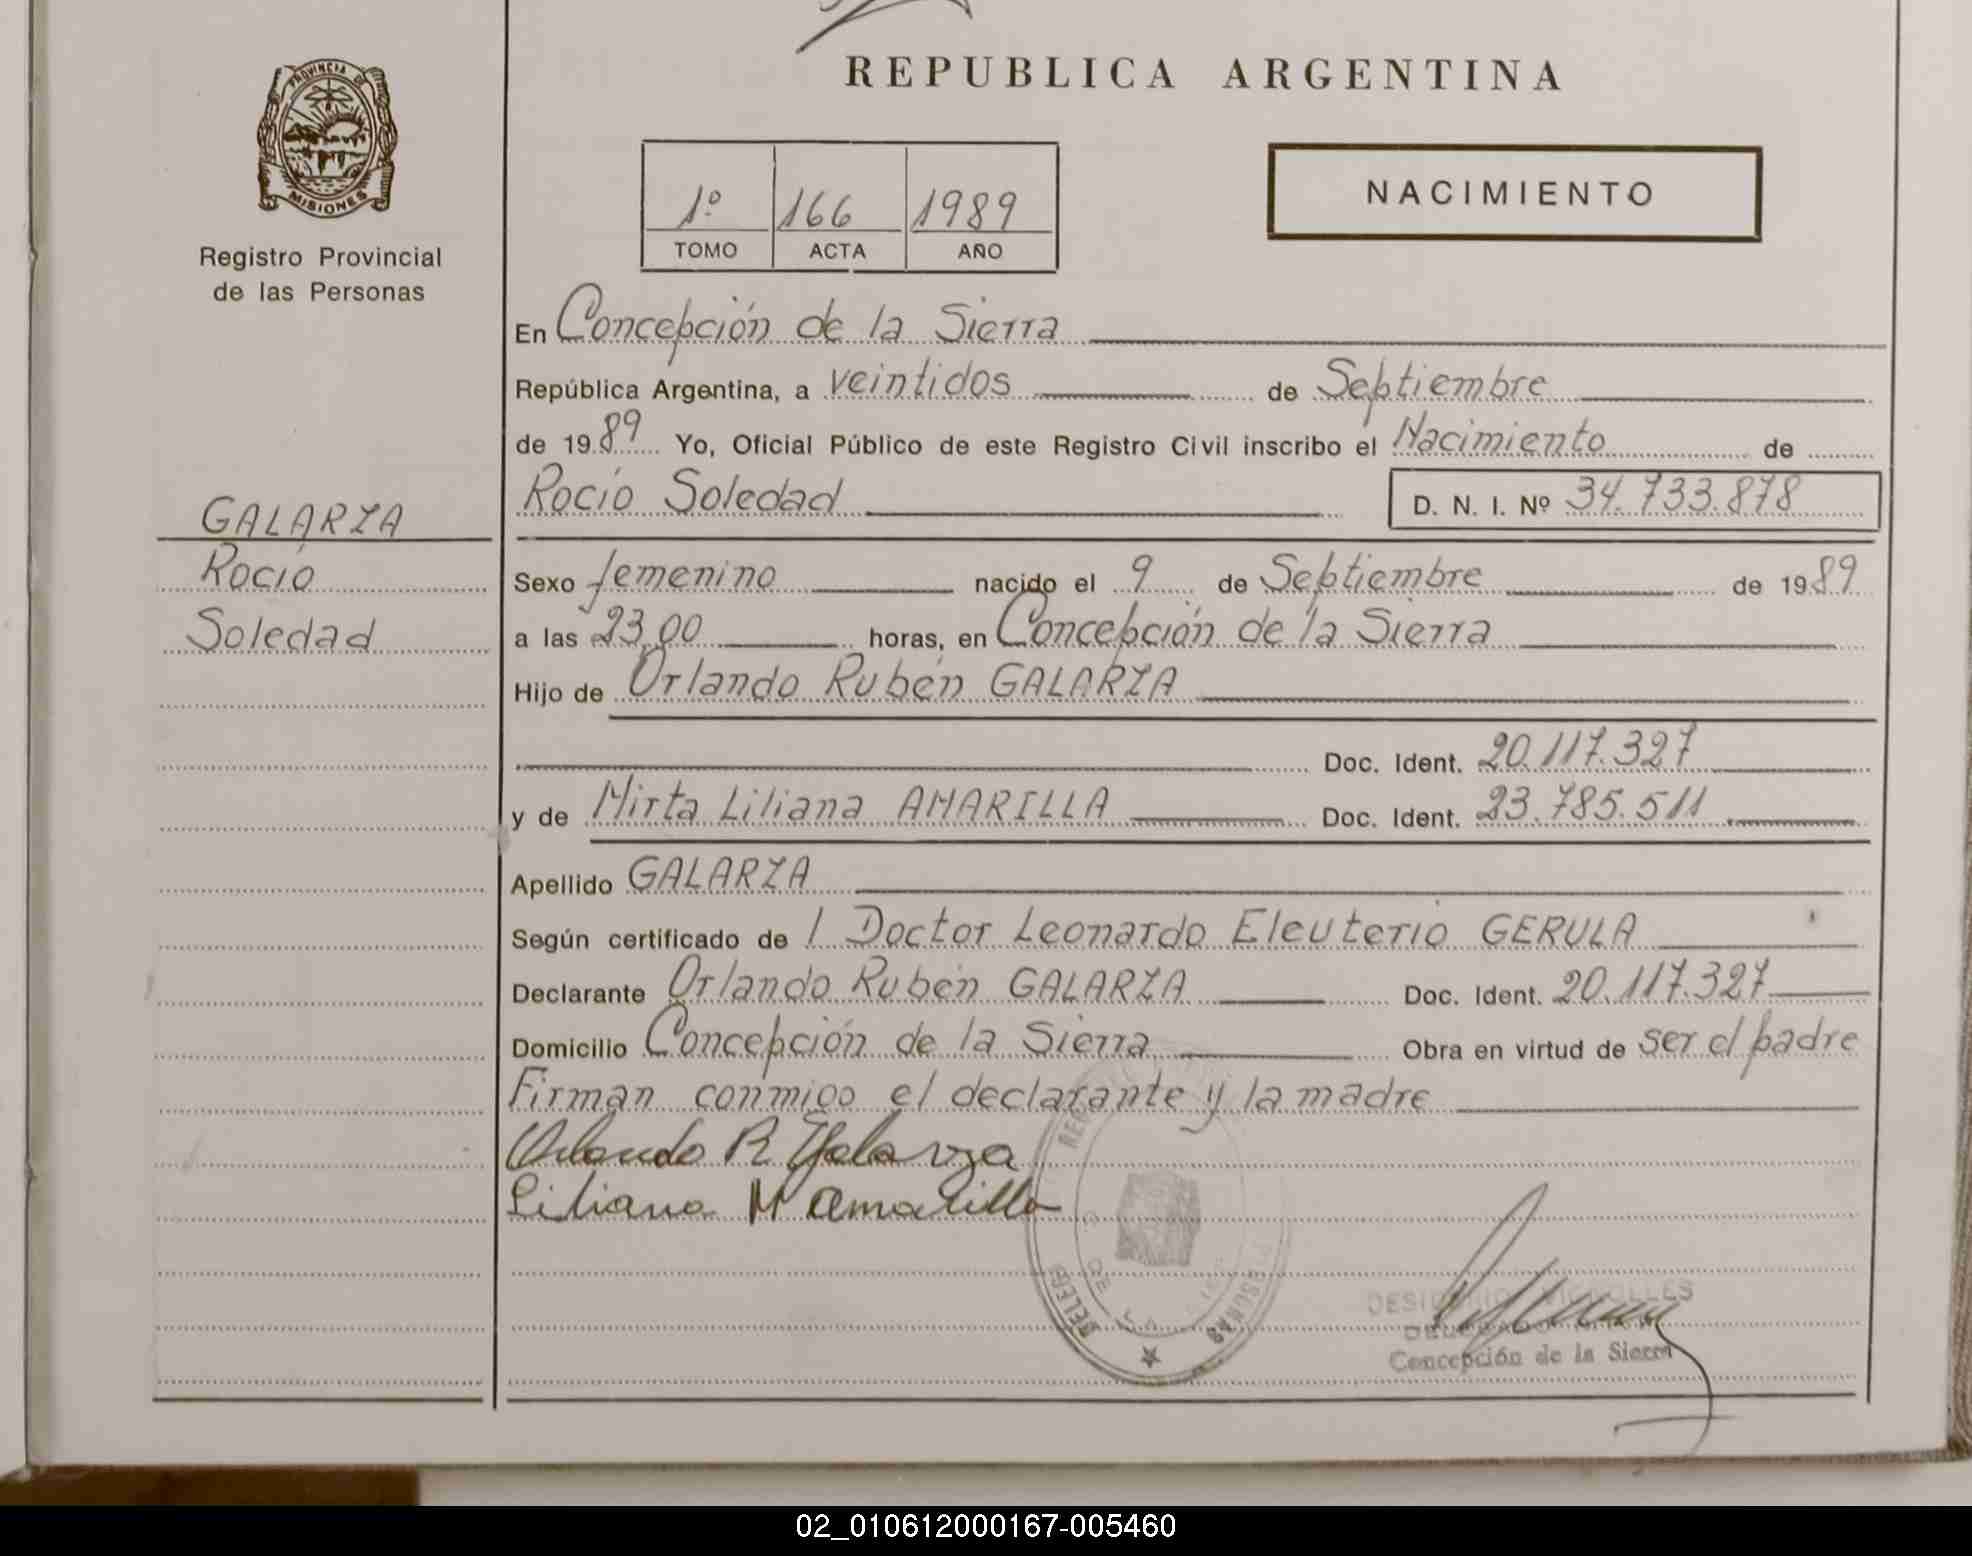 REPUBLICA ARGENTINA
PROVINCIA DE
MISIONES
Registro Provincial
de las Personas
1º 166 1989
TOMO ACTA AÑO
NACIMIENTO
En Concepción de la Sierra
República Argentina, a veintidos de Septiembre
de 1989 Yo, Oficial Público de este Registro Civil inscribo el Nacimiento de
Rocío Soledad D. N. I. Nº 34.733.878
GALARZA
Rocío
Soledad
Sexo femenino nacido el 9 de Septiembre de 1989
a las 23,00 horas, en Concepción de la Sierra
Hijo de Orlando Rubén GALARZA
Doc. Ident. 20.117.327
y de Mirta Liliana AMARILLA Doc. Ident. 23.785.511
Apellido GALARZA
Según certificado de l Doctor Leonardo Eleuterio GERULA
Declarante Orlando Rubén GALARZA Doc. Ident. 20.117.327
Domicilio Concepción de la Sierra Obra en virtud de ser el padre
Firman conmigo el declarante y la madre
Orlando R Galarza
Liliana M Amarilla
Concepción de la Sierra
02_010612000167-005460